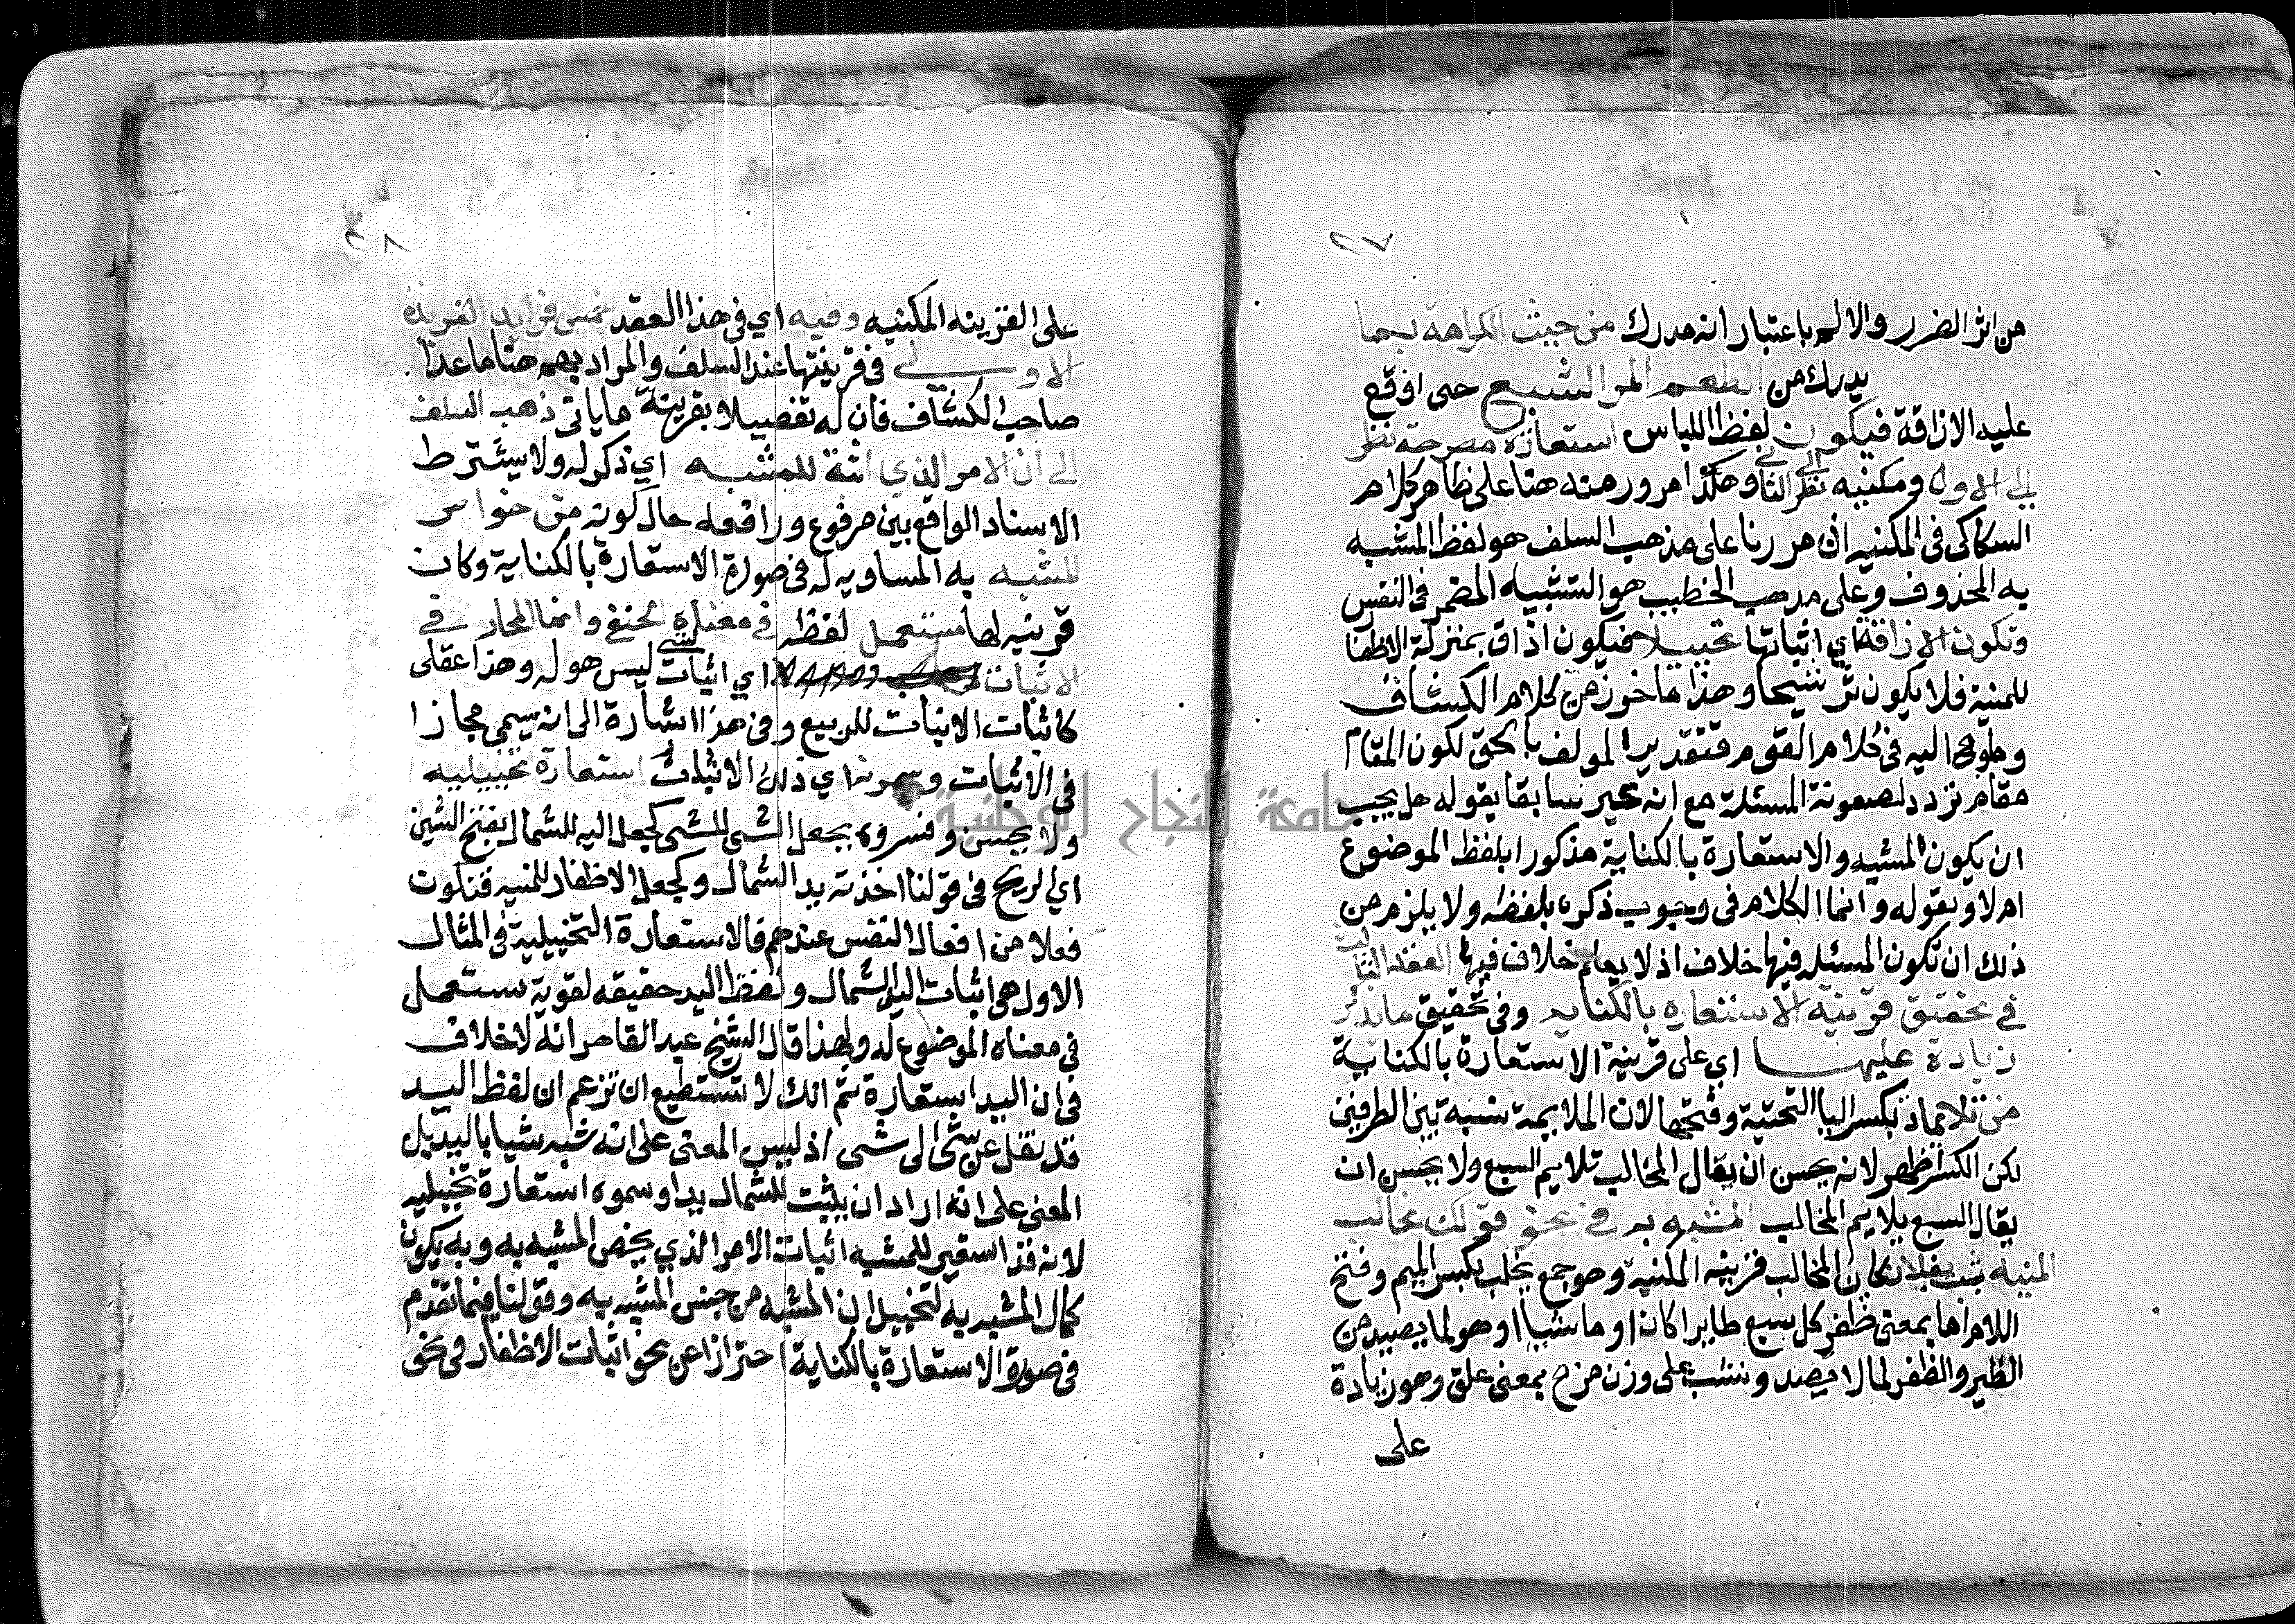 ٢٧
من اثر الضرر والالم باعتبار انه مدرك من حيث الكراهة بما
يدرك من الطعم المر البشع حتى اوقع
عليه الاذاقة فيكون لفظ اللباس استعارة مصرحة نظر
الى الاول ومكنيه نظر الى الثاني وهكذا مرور منه هنا على ظاهر كلام
السكاكى فى المكنيه ان مررنا على مذهب السلف هو لفظ المشبه
به المحذوف وعلى مذهب الخطيب هو التشبيه المضمر فى النفس
وتكون الاذاقة اي اثباتها تخييلا فيكون اذاق بمنزلة الاظفا
للمنية فلا يكون ترشيحا وهذا ماخوذ من كلام الكشاف
وملوح اليه فى كلام القوم فتقدير المولف بالحق لكون المقام
مقام تردد لصعونة المسئلة مع انه عبر سابقا بقوله هل يجب
ان يكون المشبه والاستعارة بالكناية مذكورا بلفظ الموضوع
ام لا وبقوله وانما الكلام فى وجوب ذكره بلفظه ولا يلزم من
ذلك ان تكون المسئله فيها خلاف اذ لا يعلم خلاف فيها العقد الثالث
في تحقيق قرينه الاستعاره بالكنايه وفى تحقيق ما يذكر
زيادة عليها اي على قرينة الاستعارة بالكناية
من ملايمات بكسر اليا التحتية وفتحها لان الملايمة نسبة بين الطرفين
لكن الكسر اظهر لانه يحسن ان يقال المخالب تلايم السبع ولا يحسن ان
يقال السبع يلايم المخالب المشبه به في نحو قولك مخالب
المنيه نشبت بفلان فان المخالب قرينه المكنية وهو جمع مخلب بكسر الميم وفتح
اللام اما بمعنى ظفر كل سبع طايرا كان او ماشيا او هو لما يصيد من
الطير والظفر لما لا يصيد ونشب على وزن فرح بمعنى علق وهو زيادة
على
٢٨
على القرينه المكنيه وفيه اي فى هذا العقد خمس فرايد الفريدة
الاولى فى قرينتها عند السلف والمراد بهم هنا ما عدا
صاحب الكشاف فان له تفصيلا بقرينة ما ياتى ذهب السلف
الى ان الامر الذي اثبت للمشبه اي ذكر له ولا يشترط
الاسناد الواقع بين مرفوع ورافعه حال كونه من خواص
المشبه به المساويه له فى صورة الاستعارة بالكناية وكان
قرينه لها مستعمل لفظه في معناه الحقيقي وانما المجاز في
الاثبات اي اثبات لشى ليس هو له وهذا عقلى
كاثبات الانبات للربيع وفى هذا اشارة الى انه يسمى مجازا
فى الاثبات وسمونه اي ذلك الاثبات استعارة تخييليه
ولا يحسن وفسروه بجعل الشى للشى كجعل اليد للشمال بفتح الشين
اي الريح فى قولنا اخذته يد الشمال وكجعل الاظفار للمنيه فتكون
فعلا من افعال النفس عندهم فالاستعارة التخييلية فى المثال
الاول هى اثبات اليد للشمال ولفظ اليد حقيقه لغوية مستعمل
فى معناه الموضوع له ولهذا قال الشيخ عبد القاهر انه لا خلاف
فى ان اليد استعارة ثم انك لا تستطيع ان تزعم ان لفظ اليد
قد نقل عن شى الى شى اذ ليس المعنى على انه شبه شيا باليد بل
المعنى على انه اراد ان يثبت للشمال يدا وسموه استعارة تخييليه
لانه قد استعير للمشبه اثبات الامر الذي يخص المشبه به وبه يكون
كمال المشبه به لتخييل ان المشبه من جنس المشبه به وقولنا فيما تقدم
فى صورة الاستعارة بالكناية احترازا عن نحو اثبات الاظفار فى نحو
جامعة النجاح الوطنية